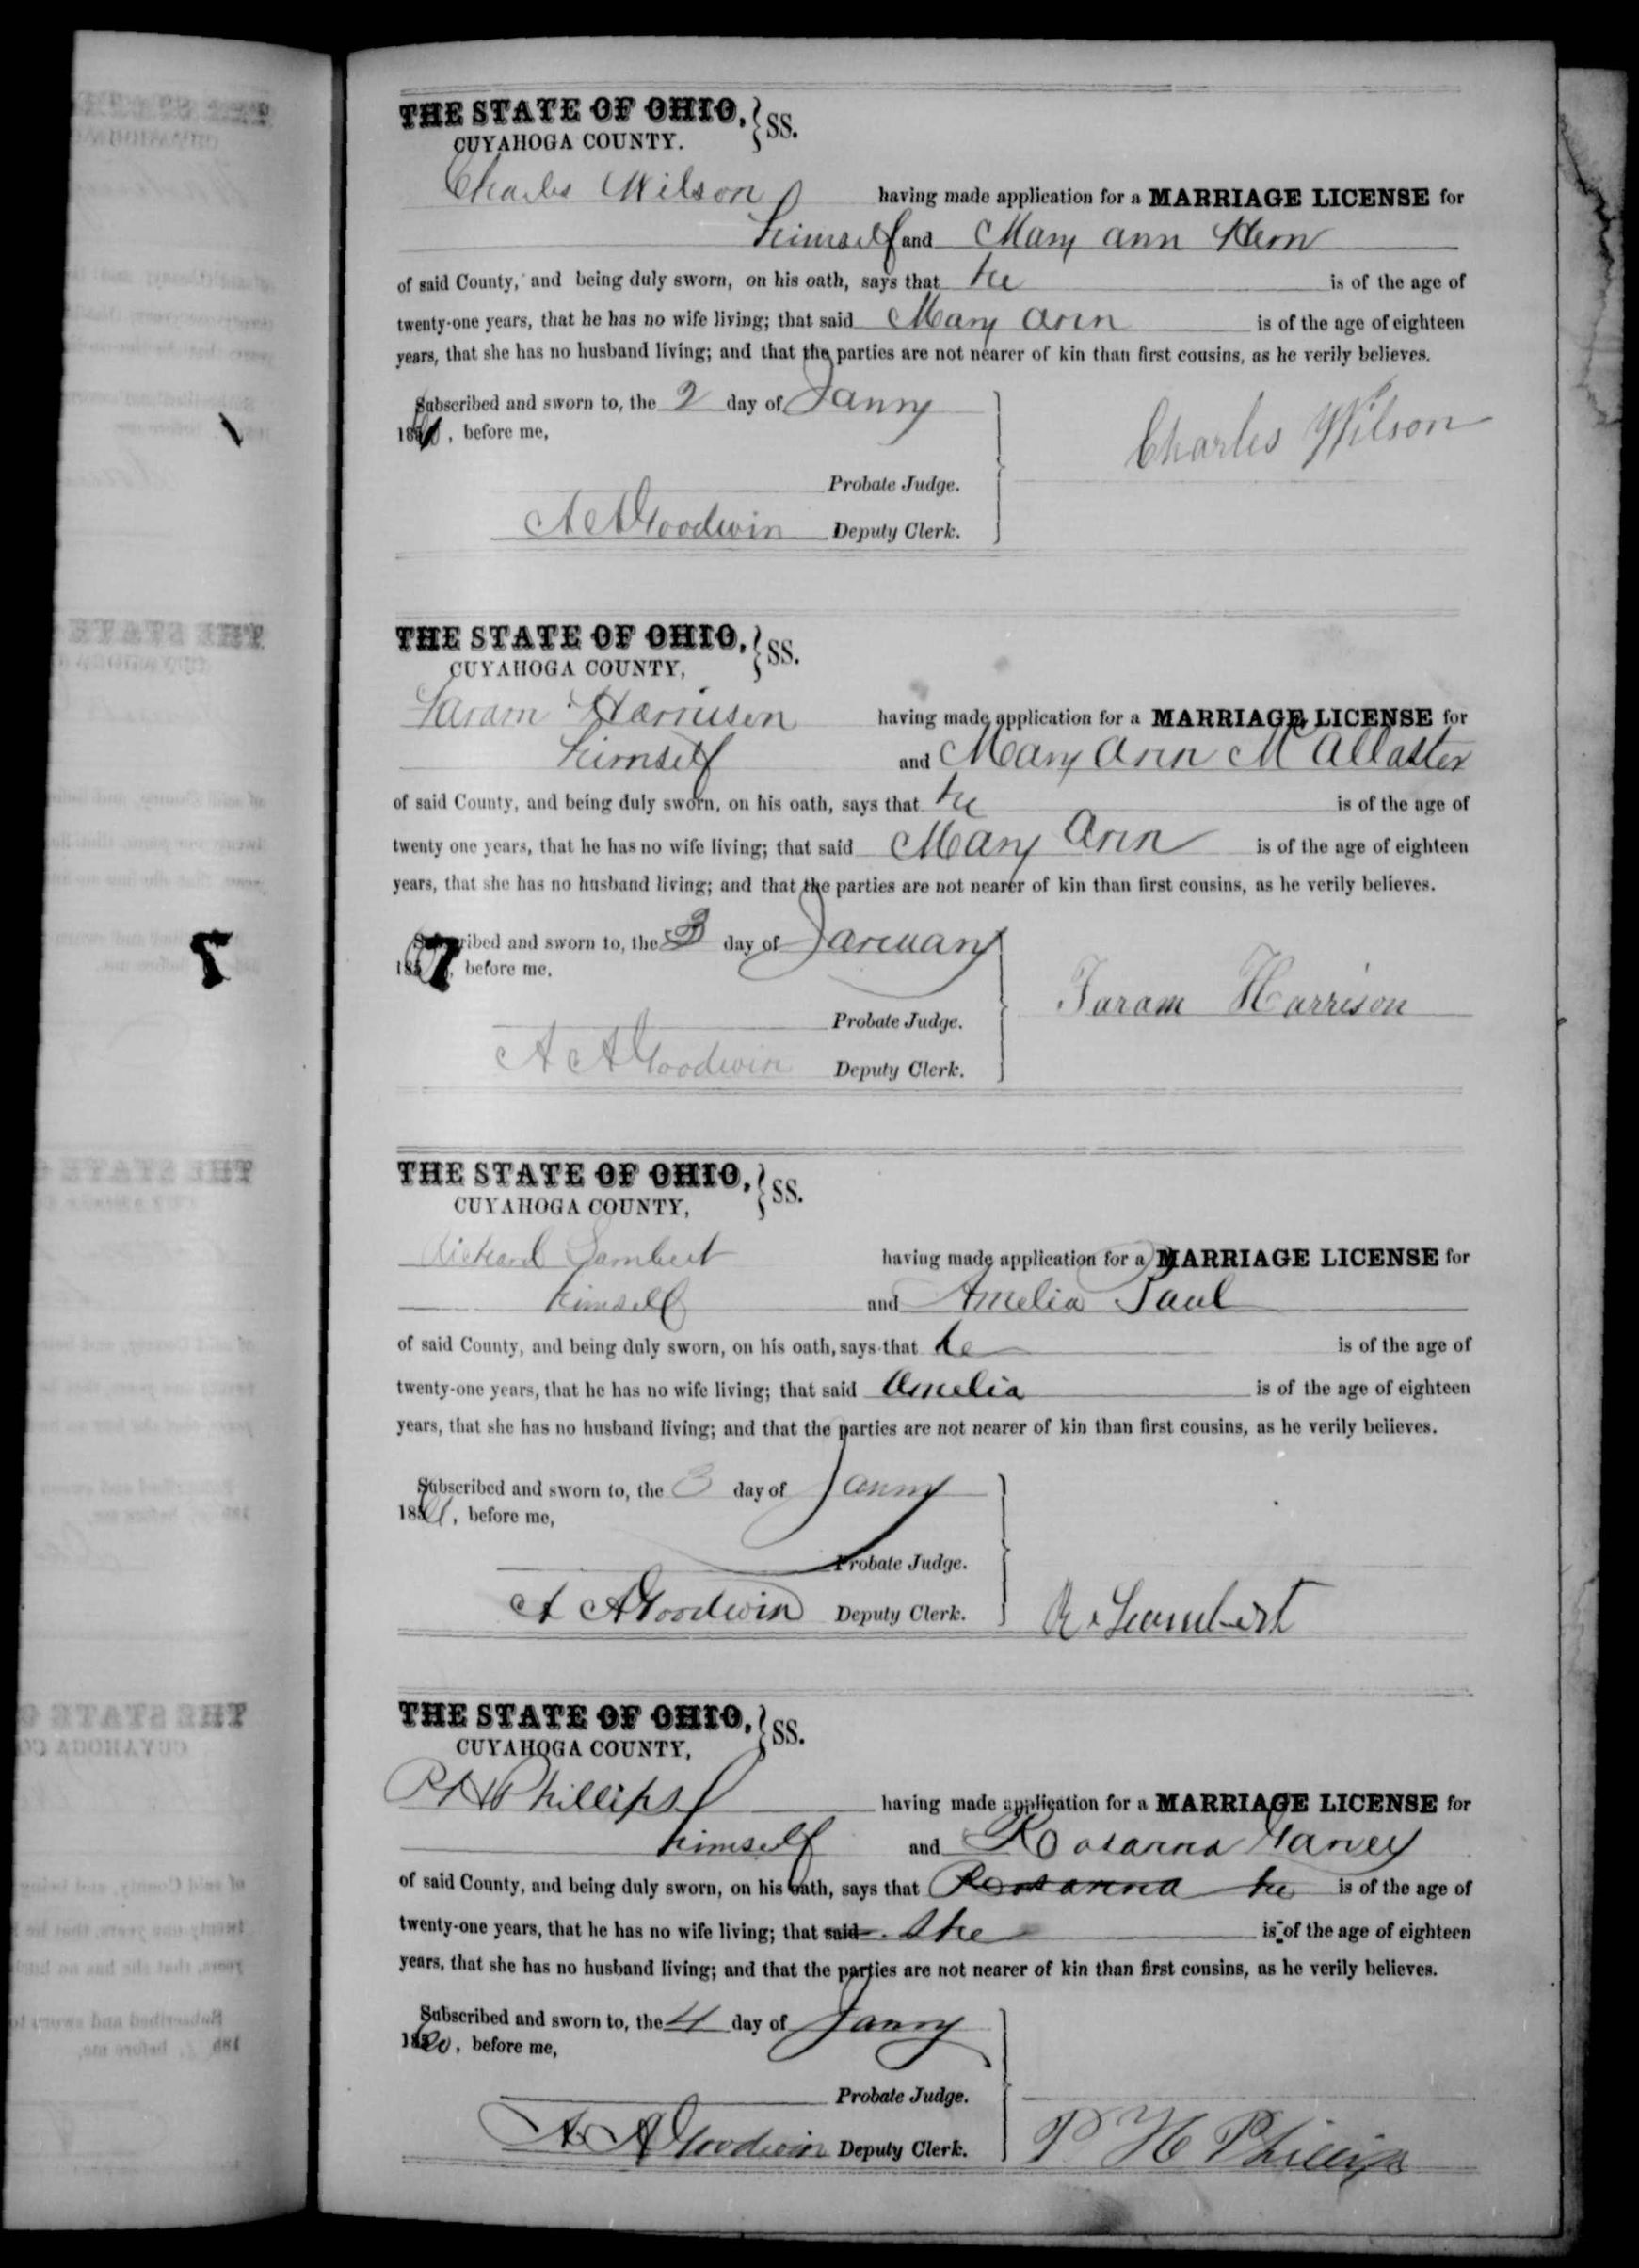 THE STATE OF OHIO, } SS.
CUYAHOGA COUNTY.
Charles Wilson having made application for a MARRIAGE LICENSE for
himself and Mary ann Hern
of said County, and being duly sworn, on his oath, says that he is of the age of
twenty-one years, that he has no wife living; that said Mary Ann is of the age of eighteen
years, that she has no husband living; and that the parties are not nearer of kin than first cousins, as he verily believes.
Subscribed and sworn to, the 2 day of Janry
186, before me,
Charles Wilson
Probate Judge.
A A Goodwin Deputy Clerk.
THE STATE OF OHIO, } SS.
CUYAHOGA COUNTY,
Taram Harrison having made application for a MARRIAGE LICENSE for
himself and Mary Ann McAllaster
of said County, and being duly sworn, on his oath, says that he is of the age of
twenty one years, that he has no wife living; that said Mary Ann is of the age of eighteen
years, that she has no husband living; and that the parties are not nearer of kin than first cousins, as he verily believes.
Subscribed and sworn to, the 3 day of January
before me,
Taram Harrison
Probate Judge.
A A Goodwin Deputy Clerk.
THE STATE OF OHIO, } SS.
CUYAHOGA COUNTY,
Richard Lambert having made application for a MARRIAGE LICENSE for
himself and Amelia Paul
of said County, and being duly sworn, on his oath, says that he is of the age of
twenty-one years, that he has no wife living; that said Amelia is of the age of eighteen
years, that she has no husband living; and that the parties are not nearer of kin than first cousins, as he verily believes.
Subscribed and sworn to, the 3 day of Janry
before me,
Probate Judge.
A A Goodwin Deputy Clerk.
R. Lambert
THE STATE OF OHIO, } SS.
CUYAHOGA COUNTY,
P H Phillips having made application for a MARRIAGE LICENSE for
himself and Rosanna Garvey
of said County, and being duly sworn, on his oath, says that Rosanna he is of the age of
twenty-one years, that he has no wife living; that said she is of the age of eighteen
years, that she has no husband living; and that the parties are not nearer of kin than first cousins, as he verily believes.
Subscribed and sworn to, the 4 day of Janry
1860, before me,
Probate Judge.
A A Goodwin Deputy Clerk.
P H Phillips